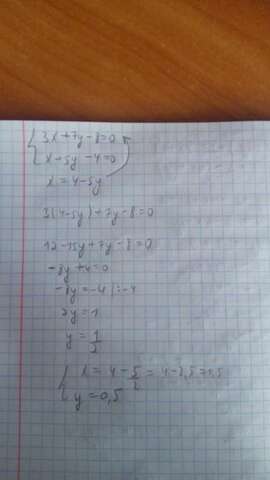 { 3x+7y-8=0
x+5y-4=0
x=4-5y
3(4-5y)+7y-8=0
12-15y+7y-8=0
-8y+4=0
-8y=-4 |:-4
2y=1
y=1/2
{ x=4-5/2=4-2,5=1,5
y=0,5